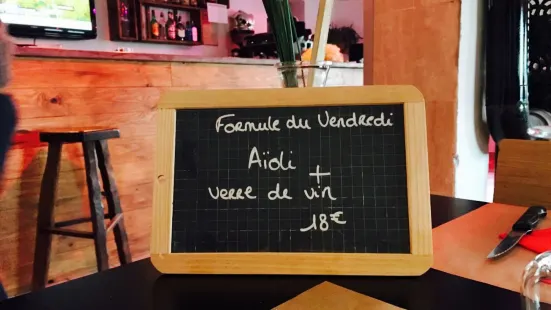 Formule du Vendredi
Aïoli
+
verre de vin
18€